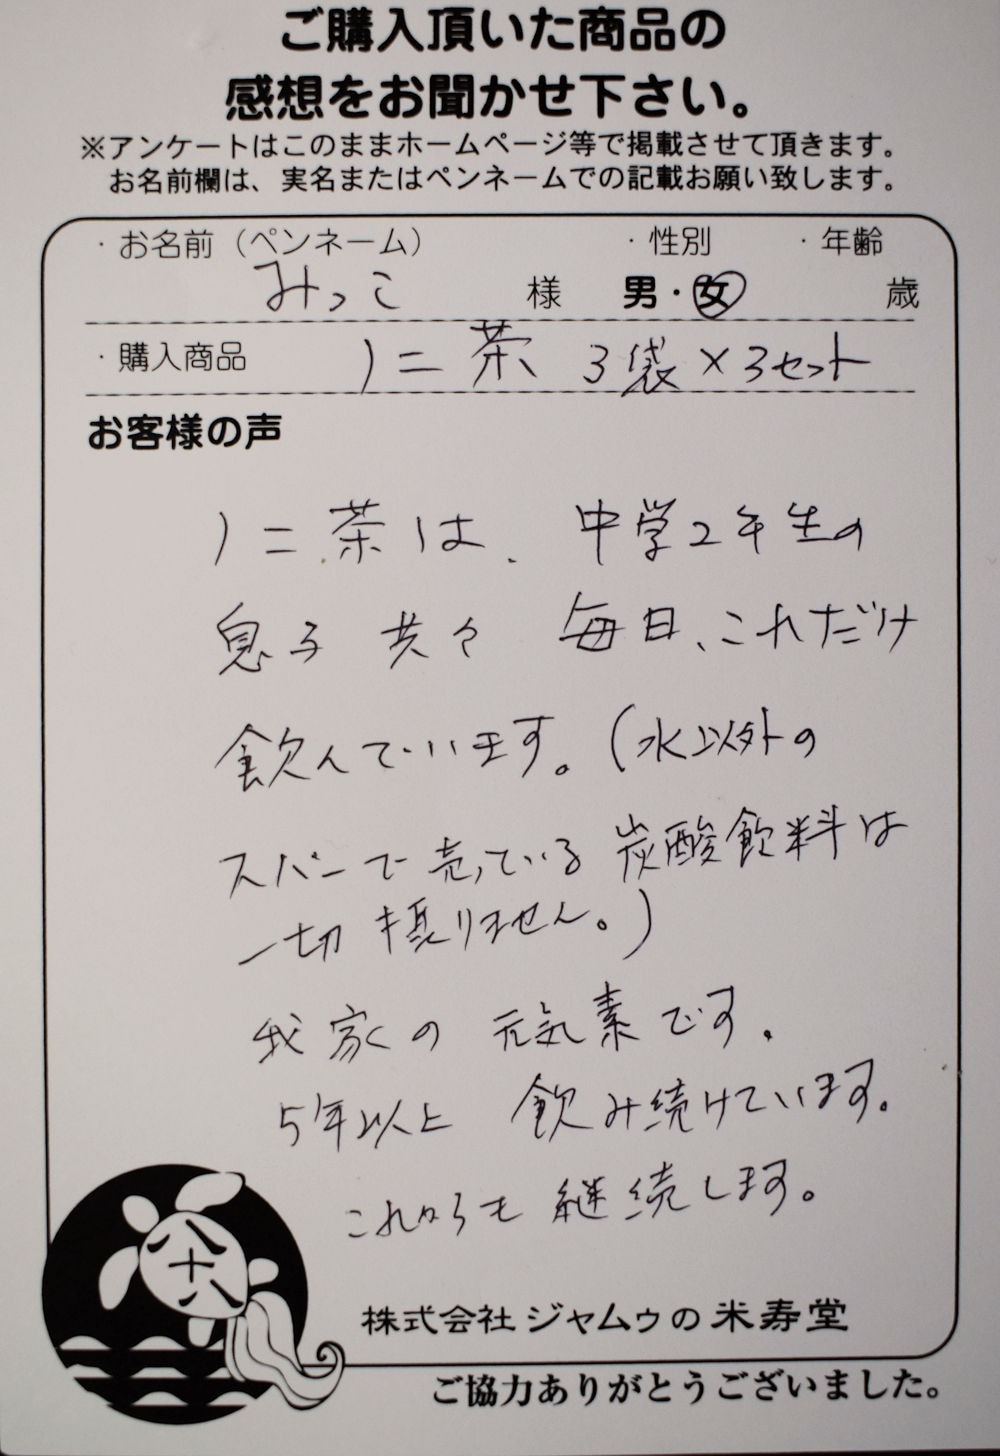 ご購入頂いた商品の
感想をお聞かせ下さい。
※アンケートはこのままホームページ等で掲載させて頂きます。
お名前欄は、実名またはペンネームでの記載お願い致します。
・お名前（ペンネーム） ・性別 ・年齢
みっこ 様 男・女 歳
・購入商品 ノニ茶 3袋×3セット
お客様の声
ノニ茶は、中学2年生の
息子共々 毎日、これだけ
飲んでいます。（水以外の
スパーで売っている炭酸飲料は
一切摂りません。）
我家の元気素です。
5年以上 飲み続けています。
これからも継続します。
八十八
株式会社 ジャムゥの米寿堂
ご協力ありがとうございました。